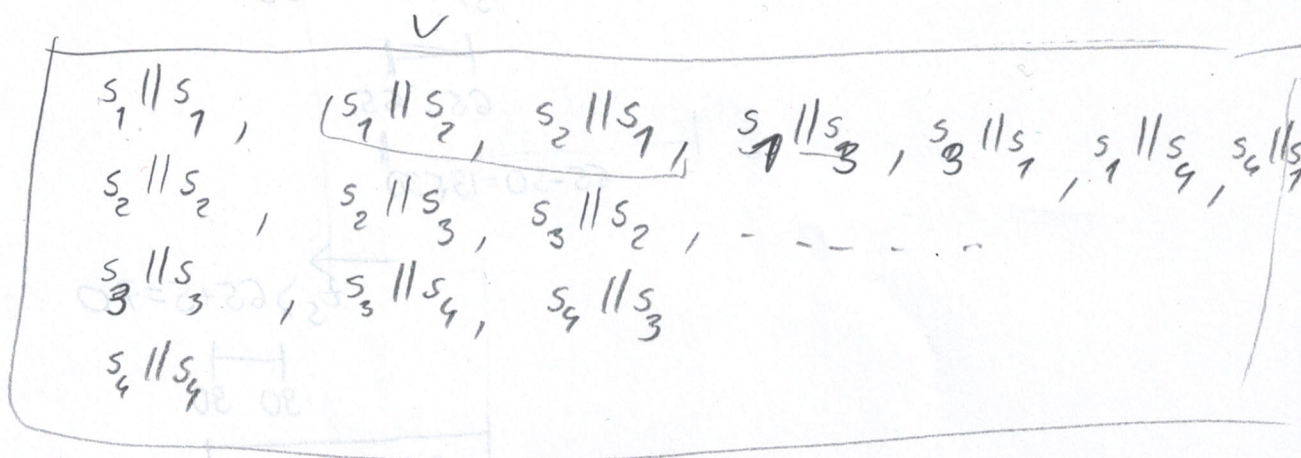 V
s₁ || s₁ , s₁ || s₂ , s₂ || s₁ , s₁ || s₃ , s₃ || s₁ , s₁ || s₄ , s₄ || s₁
s₂ || s₂ , s₂ || s₃ , s₃ || s₂ , - - - - -
s₃ || s₃ , s₃ || s₄ , s₄ || s₃
s₄ || s₄